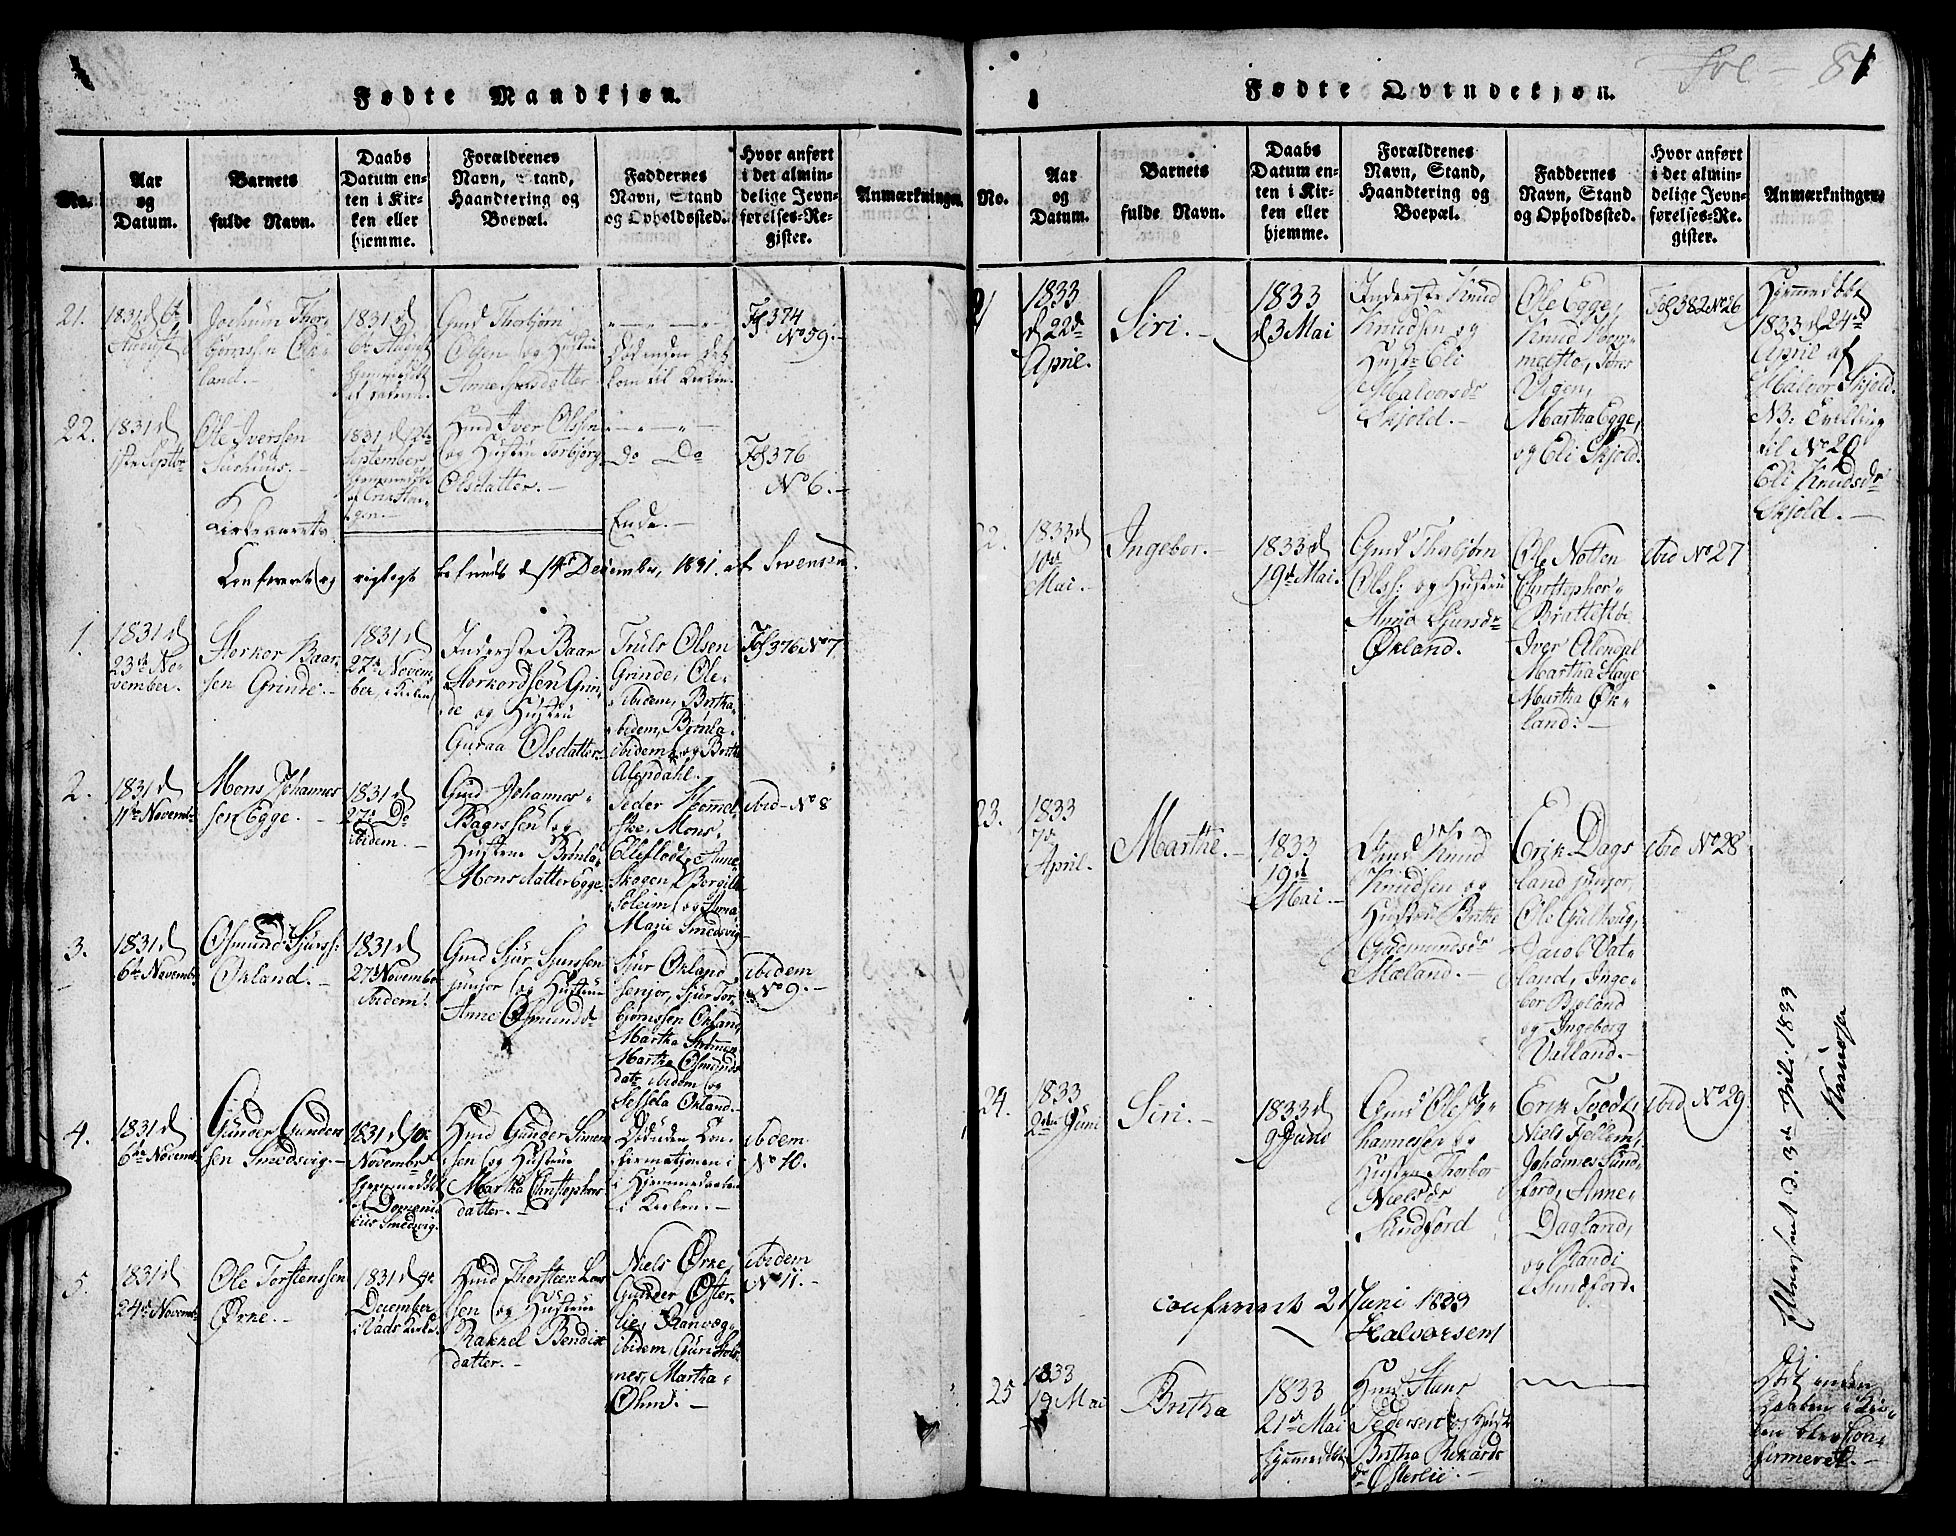 Fødte Mandkjøn.
No.
Aar
og
Datum.
Barnets
fulde Navn.
Daabs
Datum en-
ten i Kir-
ken eller
hjemme.
Forældrenes
Navn, Stand,
Haandtering og
Boepæl.
Faddernes
Navn, Stand
og Opholdssted.
Hvor anført
i det almin-
delige Jevn-
førelses-Re-
gister.
Anmærkninger.
21.
1831 d 6te
August
Jochum Thor-
bjørnssen Øk-
land.-
1831 d
6te August
Gmd Thorbjørn
Olsen og Hustru
Anne
Døde inden det
kom til Kirken.
Fol 374
No 59.-
22.
1831 d
1ste Septbr
Ole Iverssen
1831 d
September
Hmd Iver Olssen
og Hustru Torbjørg
Olsdatter.-
Do Do
Fol 376
No 6.-
Ende.-
Confereret og rigtigt befundet d 14de December, 1831. af Svensen.
1.
1831 d
23de No-
vember.
Storkor Baar-
sen Grinde.-
1831 d
27de Novem-
ber, i Kirken
Inderste Baar
Storkordsen Grin-
de og Hustru
Guraa Olsdatter.
Truls Olsen
Grinde, Ole
ibidem, Britha
ibidem, Brønla
ibidem og Britha
Alendahl.
Fol 376 No 7
2.
1831 d
11te Novembr
Mons Johannes
sen Egge.-
1831 d
27de Do
ibidem.-
Gmd Johannes
Baarssen og
Hustrue Brønla
Monsdatter Egge
Peder Hemmel
ske, Mons
Elleflodt, Anne
Skogen, Borgille
Soleim og Anna
Marie Smedsvig
ibid - No 8
3.
1831 d
6te Novembr
Osmund Sjurss:
Økland.-
1831 d
27de November
ibidem.
Gmd Sjur Sjurssen
junjor og Hustrue
Anne Osmundsdr
Sjur Økland
senjor, Sjur Tor-
bjørnssen Økland,
Martha Strømmen
Martha Osmunds
datr ibidem og
Sessela Økland.-
ibidem
No 9.-
4.
1831 d
6te Novembr
Gunder Gunder
sen Smedsvig.-
1831 d 10de
Novembr
hjemmedøbt
af Domeni-
kus Smedsvig.
Hmd Gunder Simen
sen og Hustrue
Martha Christopher
datter.-
Døde uden Con-
firmationen i
Hjemmedaaben
i Kirken.-
ibidem
No 10.
5.
1831 d
24de Novembr
Ole Torstenssen
Ørke.-
1831 d 4de
December
Hmd Thorsteen Lar
sen og Hustrue
Rakkel Bendix
datter.-
Niels Ørke,
Gunder Øster-
lie, Ranveg
ibidem, Guri
Martha
ibidem
No 11.-
Fol - 81
Fødte Qvindekjøn.
No.
Aar
og
Datum.
Barnets
fulde Navn.
Daabs
Datum en-
ten i Kir-
ken eller
hjemme.
Forældrenes
Navn, Stand,
Haandtering og
Boepæl.
Faddernes
Navn, Stand
og Opholdssted.
Hvor anført
i det almin-
delige Jevn-
førelses-Re-
gister.
Anmærkninger.
21
1833
d 22de
April.
Siri.-
1833
d 3 Mai
Inderste Knud
Knudsen og
Hustr Eli
Halvorsdr
Skjold.-
Ole Egge,
Knud
Martha Egge,
og Eli Skjold.
Fol 382 No 26
Hjemmedøbt
1833 d 24de
April af
Halvor Skjold.
NB. Tvilling
til No 20
Eli Knudsdr
Skjold.-
22.
1833 d
10de
Mai.-
Ingebor.-
1833 d
19de Mai.
Gmd Thorbjørn
Olss: og Hustru
Anna Sjursdr
Økland.
Ole Notten
Christopher
Brattestøe
Iver
Martha Hage
Martha Øk-
land.-
ibid No 27
23.
1833
7de
April.
Marthe.-
1833
19de
Mai.-
Gmd Knud
Knudsen og
Hustru Brithe
Gudemundsdr
Mæland.-
Erik Dags
land junjor,
Ole
Jacob Vat-
land, Inge-
bor
og Ingeborg
Velland.-
ibid No 28
24.
1833
2den Juni
Siri.-
1833 d
9 Juni
Gmd Ole Jo-
hannesen og
Hustru Thorbor
Nielsdr
Sundford
Erik Tvedt,
Niels Fellem,
Johannes Sund
ford, Anne
Dagland,
og Randi
Sundford.
ibid No 29
conferert 21 Juni 1833
Halvorsen
25
1833
19 Mai
Britha
1833
21de Mai
hjemmedøbt
Hmd Hans
Pedersen og Hustr
Britha Rikards
dr Østerlie.-
Død inden
Daaben i Kir-
ken blev con-
firmeret.-
Efterseet d. 3de Juli 1833
Knudssen